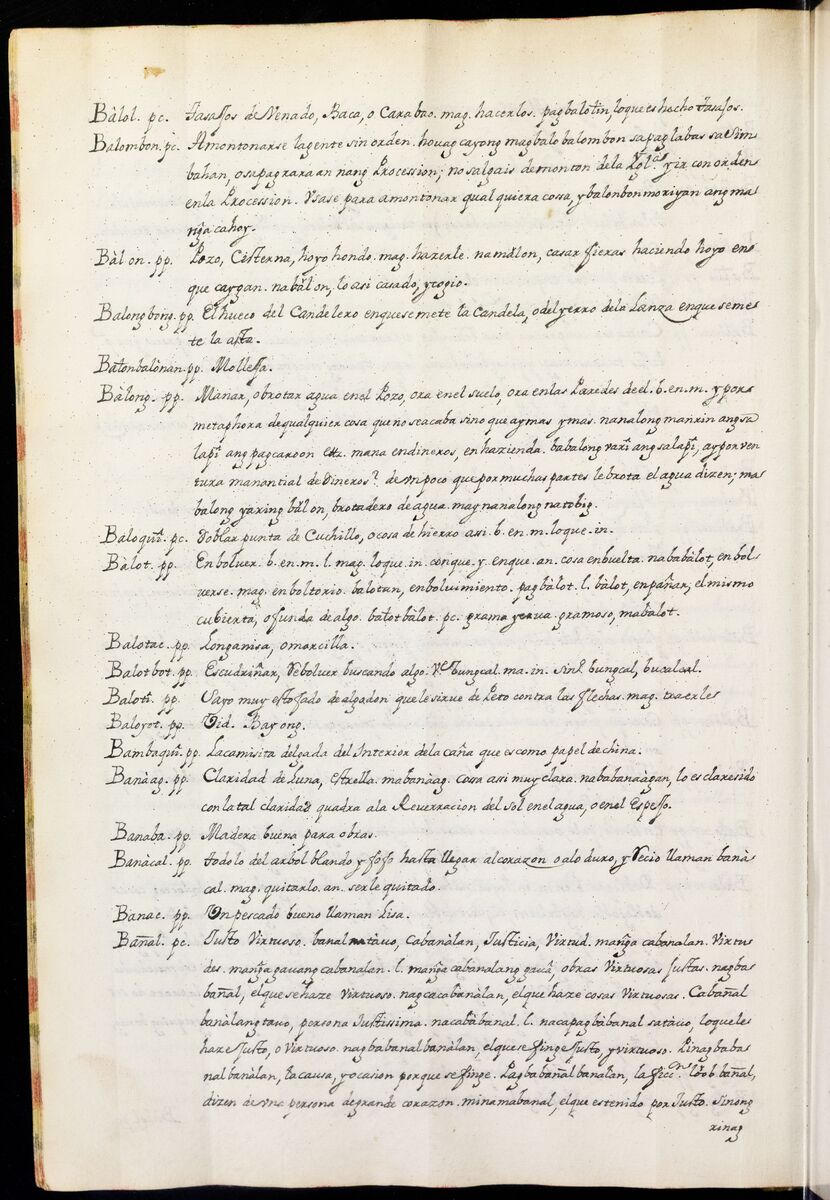 Bàlol. pc. Tasassos de Venado, Baca, o Carabao. mag. hacerlos. pagbalotin, loque es hecho tasasos.
Balombon. pc. Amontonarse lagente sin orden. houag cayong magbalo balombon sapaglabas sa Sim
bahan, o sa pagraraan nang Procession; no salgais demonton dela Ygl.ª y ir con orden
enla Procession. Vsase para amontonar qual quiera cossa, y balonbon moriyan ang ma
n̂ga cahoy.
Bàlon. pp. Pozo, Cisterna, hoyo hondo. mag. hazerle. namàlon, casar fieras haciendo hoyo en
que caygan. nabàlon, lo asi casado, y cogio.
Balongbòng. pp. El hueco del Candelero enquesemete la Candela, o del yerro dela Lanza enque seme
te la asta.
Balonbalònan. pp. Mollessa.
Bàlong. pp. Manar, o brotar agua enel Pozo, ora enel suelo, ora enlas Paredes de el. b. en. m. y por
metaphora de qualquier cosa que no seacaba sino que ay mas y mas. nanalong manrin ang sa
lapî ang pagcaroon etz. mana endineros, en hazienda. babalong varî ang salapî, ay por ven
tura manantial de Dineros? de vn poco que por muchas partes le brota el agua dizen; ma
balong yaring bàlon, brotadero de agua. may nanalong na tobig.
Baloquî. pc. Doblar punta de Cuchillo, o cosa de hierro asi. b. en. m. loque. in.
Bàlot. pp. Enbolver. b. en. m. l. mag. loque. in. conque. y. enque. an. cosa enbuelta. nababàlot, en bol
verse. mag. enboltorio. balotan, enboluimiento. pagbàlot. l. bàlot, enpañar, el mismo
cubierta, o funda de algo. balotbàlot. pc. grama yerua. gramoso, mabàlot.
Balotac. pp. Longanisa, o morcilla.
Balotbot. pp. Escudriñar, Rebolver buscando algo. Vt bungcal. ma. in. Sinl. bungcal, bucalcal.
Balotî. pp. Sayo muy estofado de algodon que le sirue de Peto contra las flechas. mag. traerles
Baloyot. pp. Vid. Bayong.
Bambaquî. pp. La camisita delgada del Interior dela caña que es como papel de china.
Banàag. pp. Claridad de Luna, estrella. mabanàag. cossa asi muy clara. nababanaàgan, lo esclaresido
con la tal claridad quadra ala Reuerracion del sol enel agua, o enel Espesso.
Banaba. pp. Madera buena para obras.
Banàcal. pp. todo lo del arbol blando y fofo hasta llegar al corazon o alo duro, y Recio llaman banà
cal. mag. quitarlo. an. serle quitado.
Banac. pp. Vn pescado bueno llaman Lisa.
Banal. pc. Justo Virtuoso. banal na tàuo, Cabanàlan, Justicia, Virtud. man̂ga cabanalan. Virtu
des. man̂ga gauang cabanalan. l. man̂ga cabanalang gauâ, obras Virtuosas Justas. nagba
banal, el que se haze Virtuoso. nagcacabanàlan, el que haze cosas Virtuosas. Cabanal
banàlang tauo, persona Justissima. nacabàbanal. l. nacapagbàbanal sa tàuo, loqueles
haze Justo, o Virtuoso. nagbabanalbanàlan, el que se finge Justo, y virtuoso. Pinagbaba
nalbanàlan, la causa, y ocasion porque se finge. Pagbabanalbanalan, la ficc.on loob banal,
dizen de vna persona de grande corazon. minamabanal, el que es tenido por Justo. Sinong
xinag